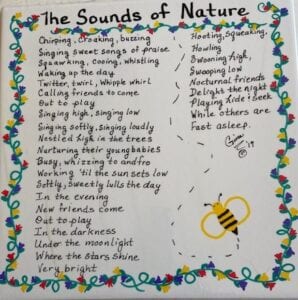 The Sounds of Nature
Chirping, Croaking, buzzing
Singing sweet songs of praise
Squawking, cooing, whistling
Waking up the day.
Twitter, twirl, Whipple whirl
Calling friends to come
Out to play
Singing high, singing low
Singing softly, singing loudly
Nestled high in the trees
Nurturing their young babies
Busy, whizzing to and fro
Working 'til the sun sets low
Softly, Sweetly lulls the day
In the evening
New friends come
Out to play
In the darkness
Under the moonlight
Where the Stars Shine
Very bright
Hooting, squeaking,
Howling
Swooning high,
Swooping low
Nocturnal friends
Delight the night
Playing hide & Seek
While others are
Fast asleep.